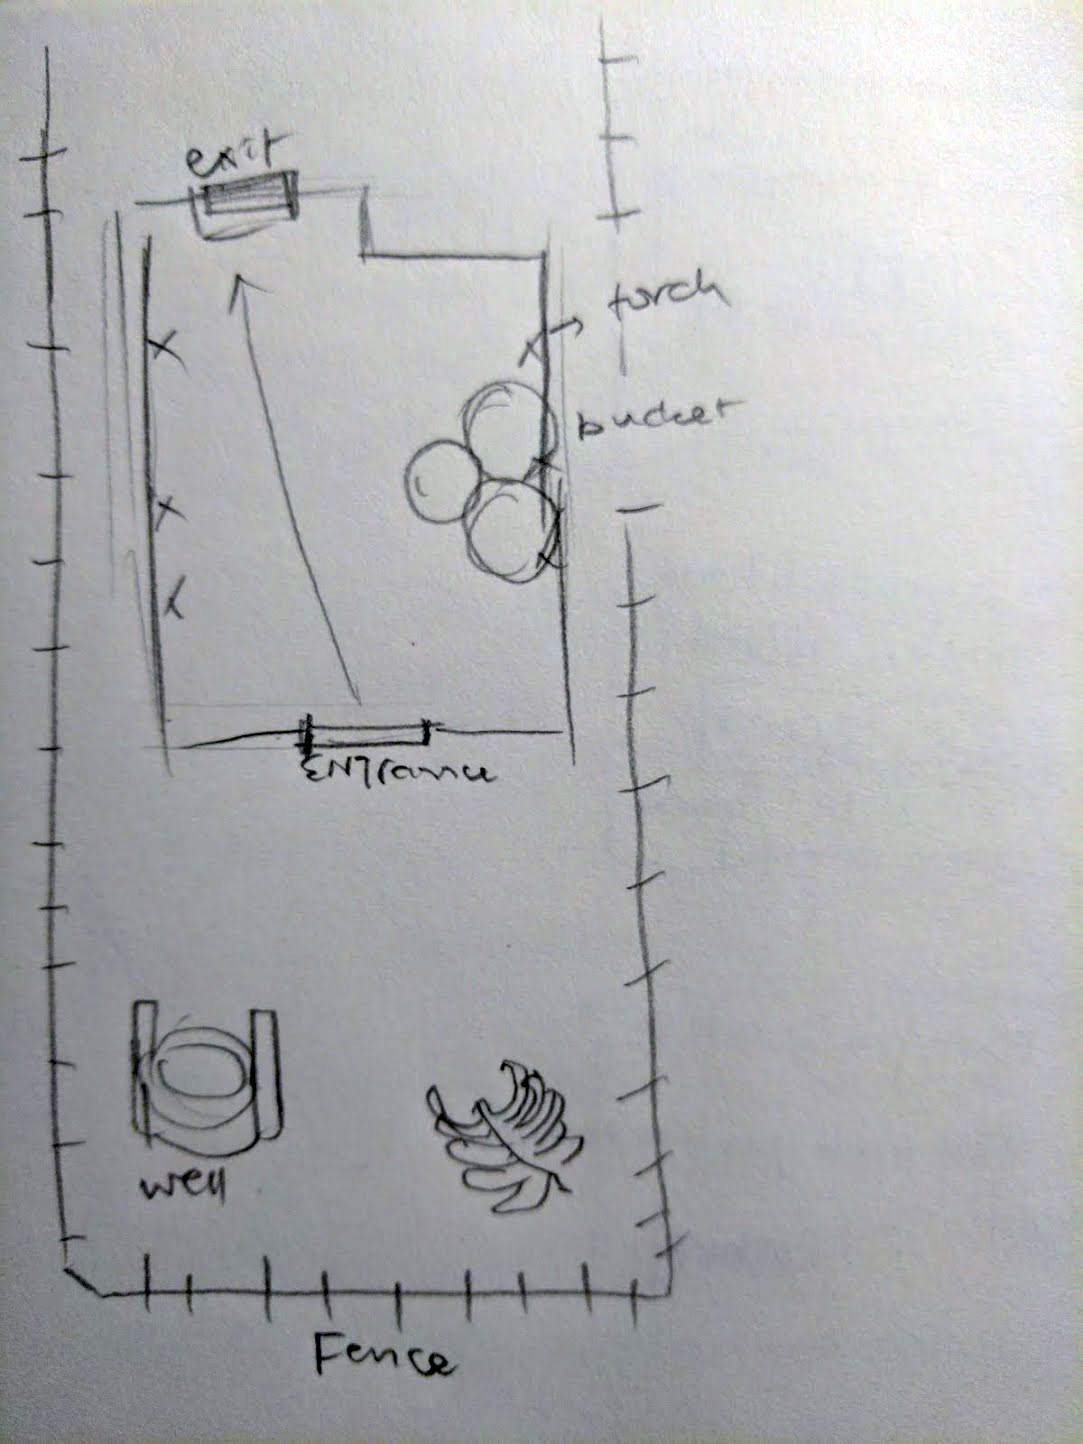 exit
torch
bucket
ENTrance
well
Fence